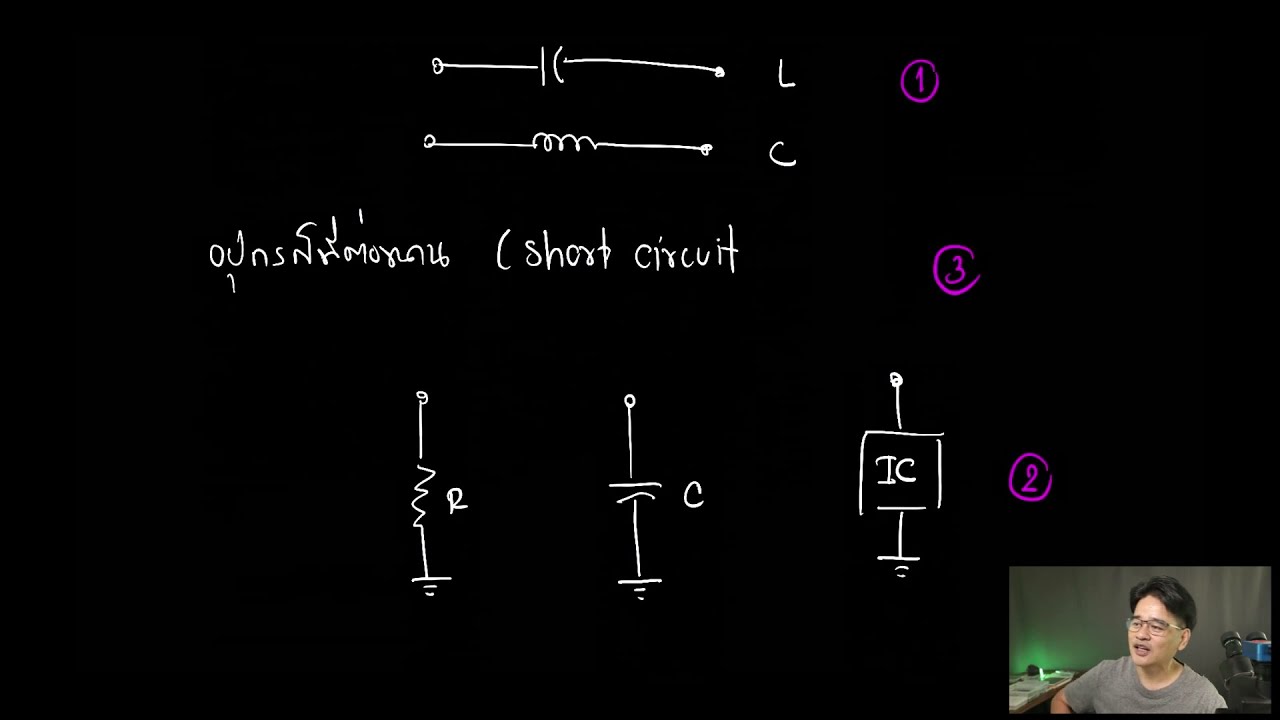 L ①
C
อุปกรณ์ที่ต่อขนาน (short circuit ③
IC
R C ②